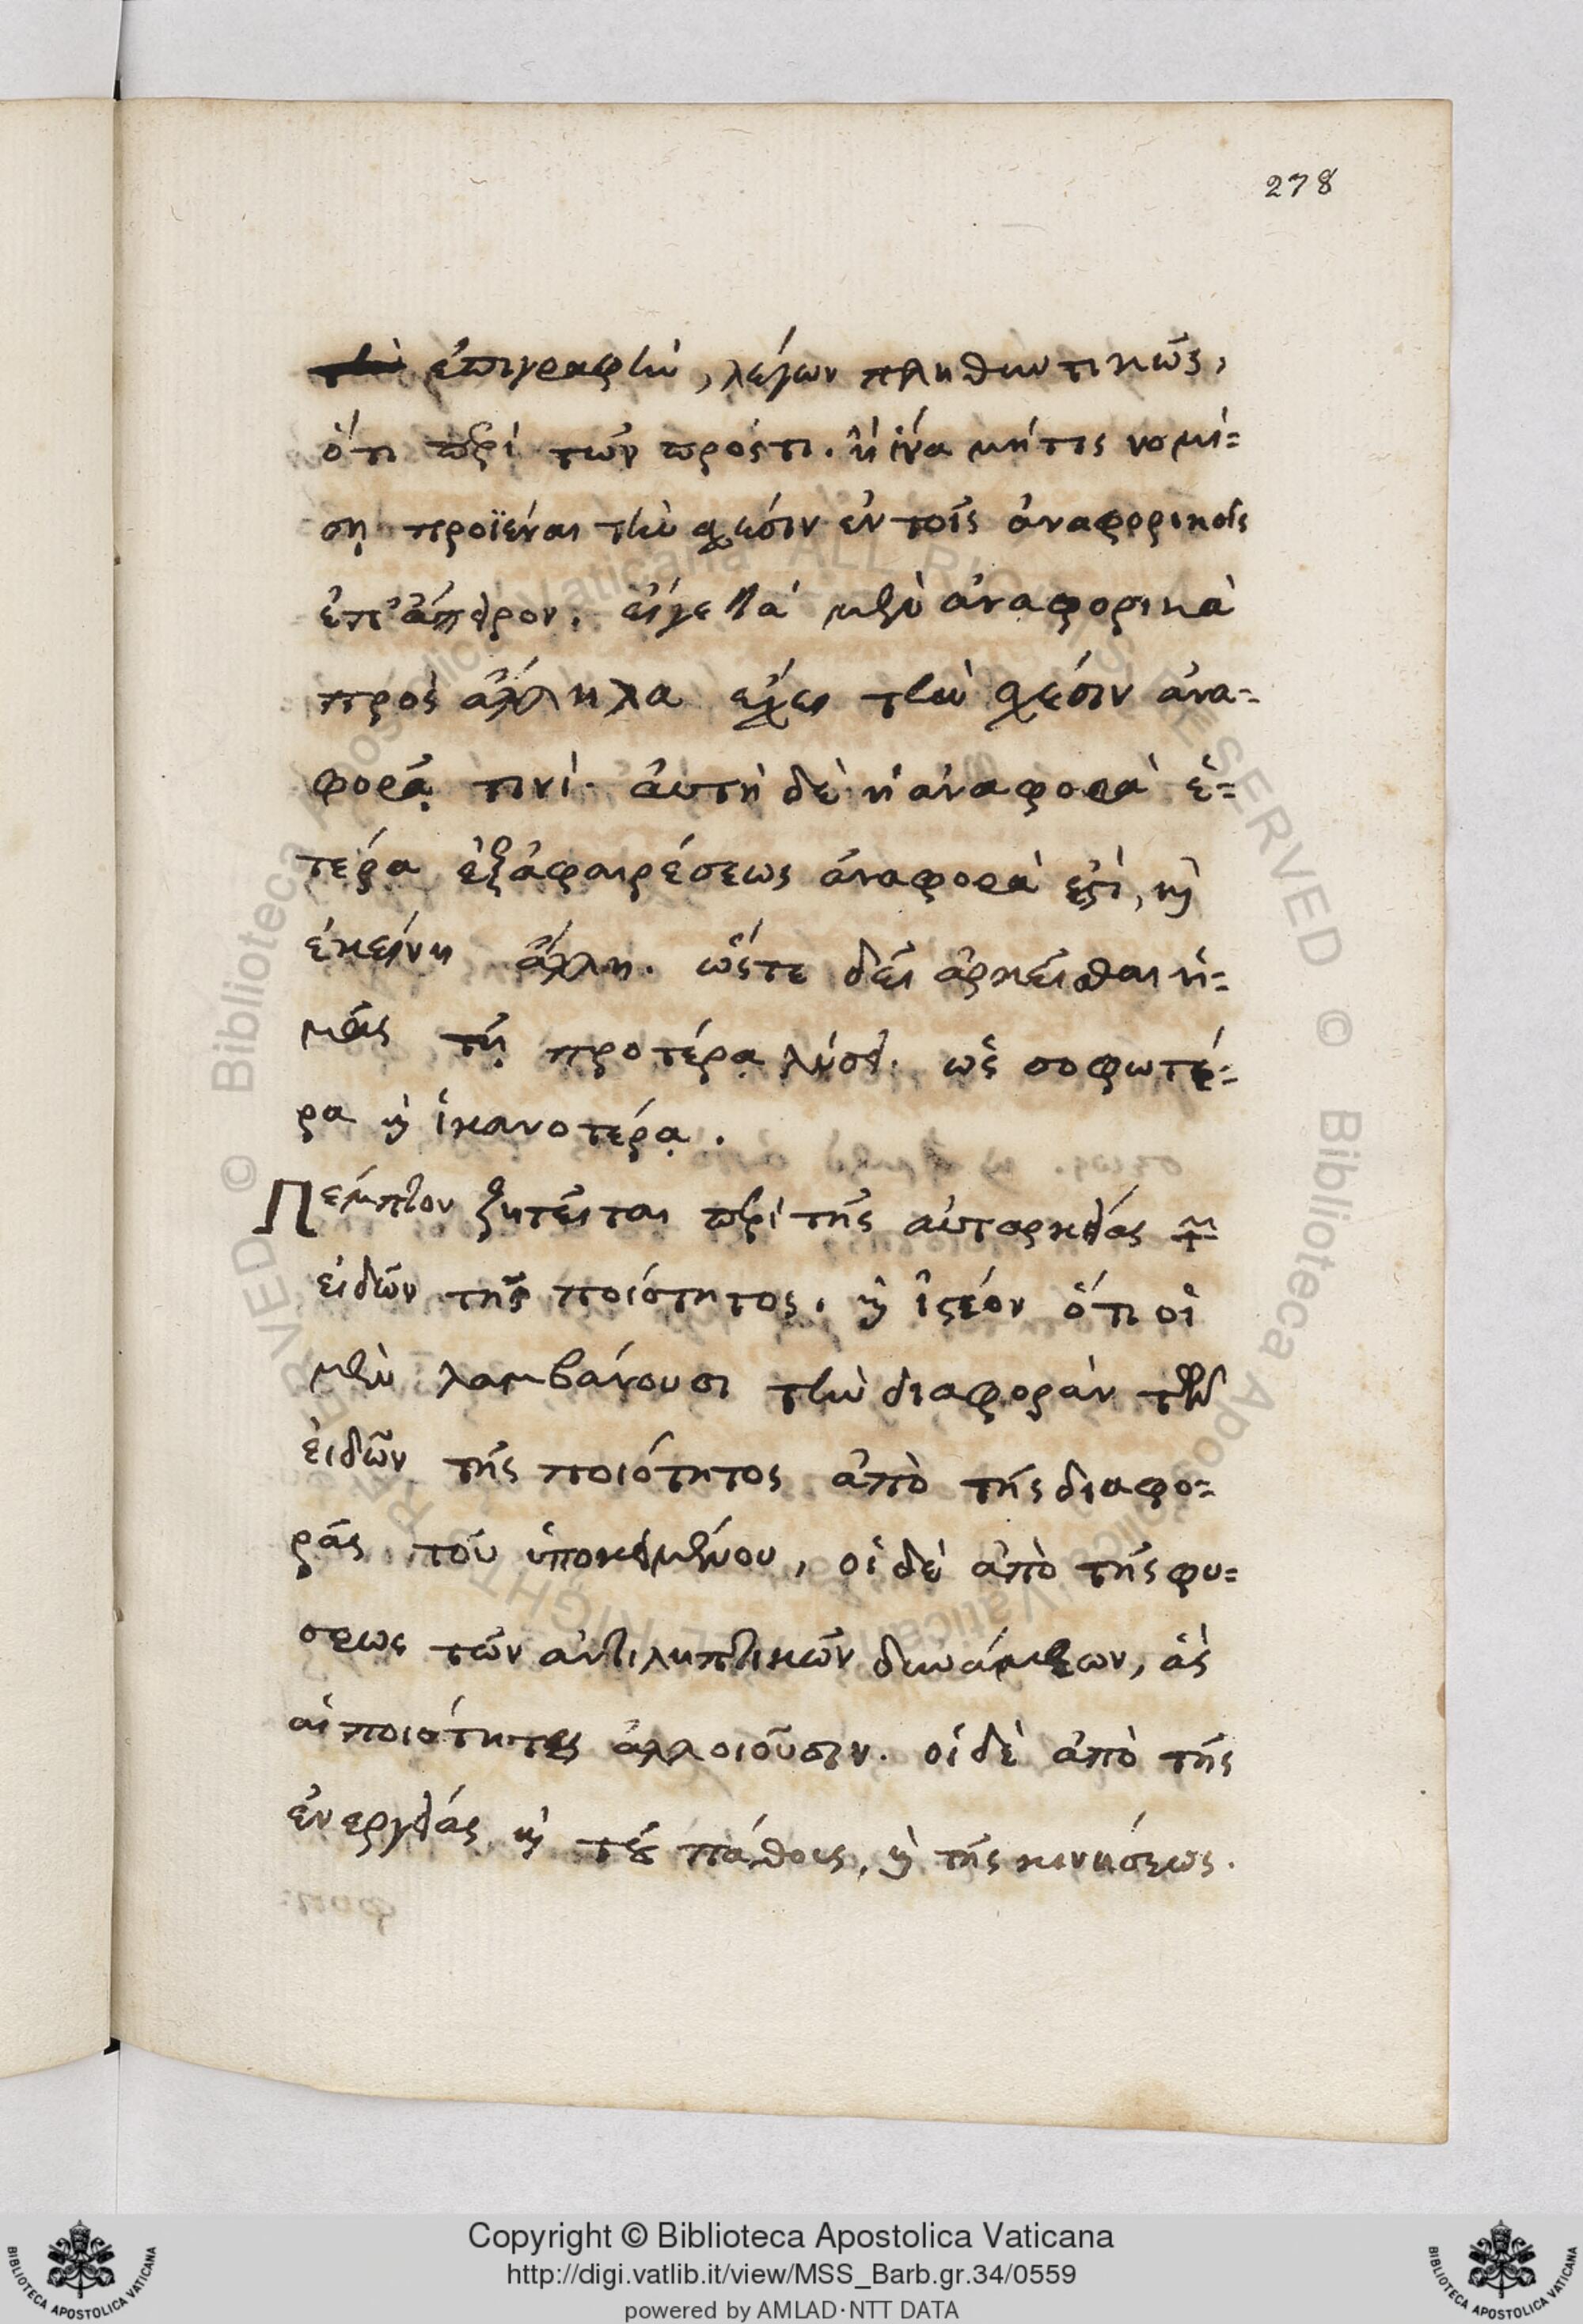 278
τὴν ἐπιγραφὴν, λέγων πληθυντικῶς,
ὅτι περὶ τῶν πρόςτι. ἢ ἵνα μήτις νομί=
σῃ προϊέναι τὴν σχέσιν ἐν τοῖς ἀναφορικοῖς
ἐπ' ἄπειρον. εἴγε τὰ μὲν ἀναφορικὰ
πρὸς ἄλληλα ἔχει τὴν σχέσιν ἀνα=
φορᾷ τινί. αὐτὴ δὲ ἡ ἀναφορὰ ἑ=
τέρα ἐξαφαιρέσεως ἀναφορὰ ἐστί, καὶ
ἐκείνη ἄλλη. ὥςτε δεῖ ἀρκεῖσθαι ἡ=
μᾶς τῇ προτέρᾳ λύσει. ὡς σοφωτέ=
ρα καὶ ἱκανοτέρᾳ.
Πέμπτον ζητεῖται περὶ τῆς αὐταρκείας τῶν
εἰδῶν τῆς ποιότητος. καὶ ἰστέον ὅτι οἱ
μὲν λαμβάνουσι τὴν διαφορὰν τῶν
εἰδῶν τῆς ποιότητος ἀπὸ τῆς διαφο=
ρᾶς τοῦ ὑποκειμένου, οἱ δὲ ἀπὸ τῆς φύ=
σεως τῶν ἀντιληπτικῶν δυνάμεων, ἃς
αἱ ποιότητες ἀλλοιοῦσιν. οἱ δὲ ἀπὸ τῆς
ἐνεργείας καὶ τοῦ πάθους, καὶ τῆς κινήσεως.
Copyright © Biblioteca Apostolica Vaticana
http://digi.vatlib.it/view/MSS_Barb.gr.34/0559
powered by AMLAD·NTT DATA